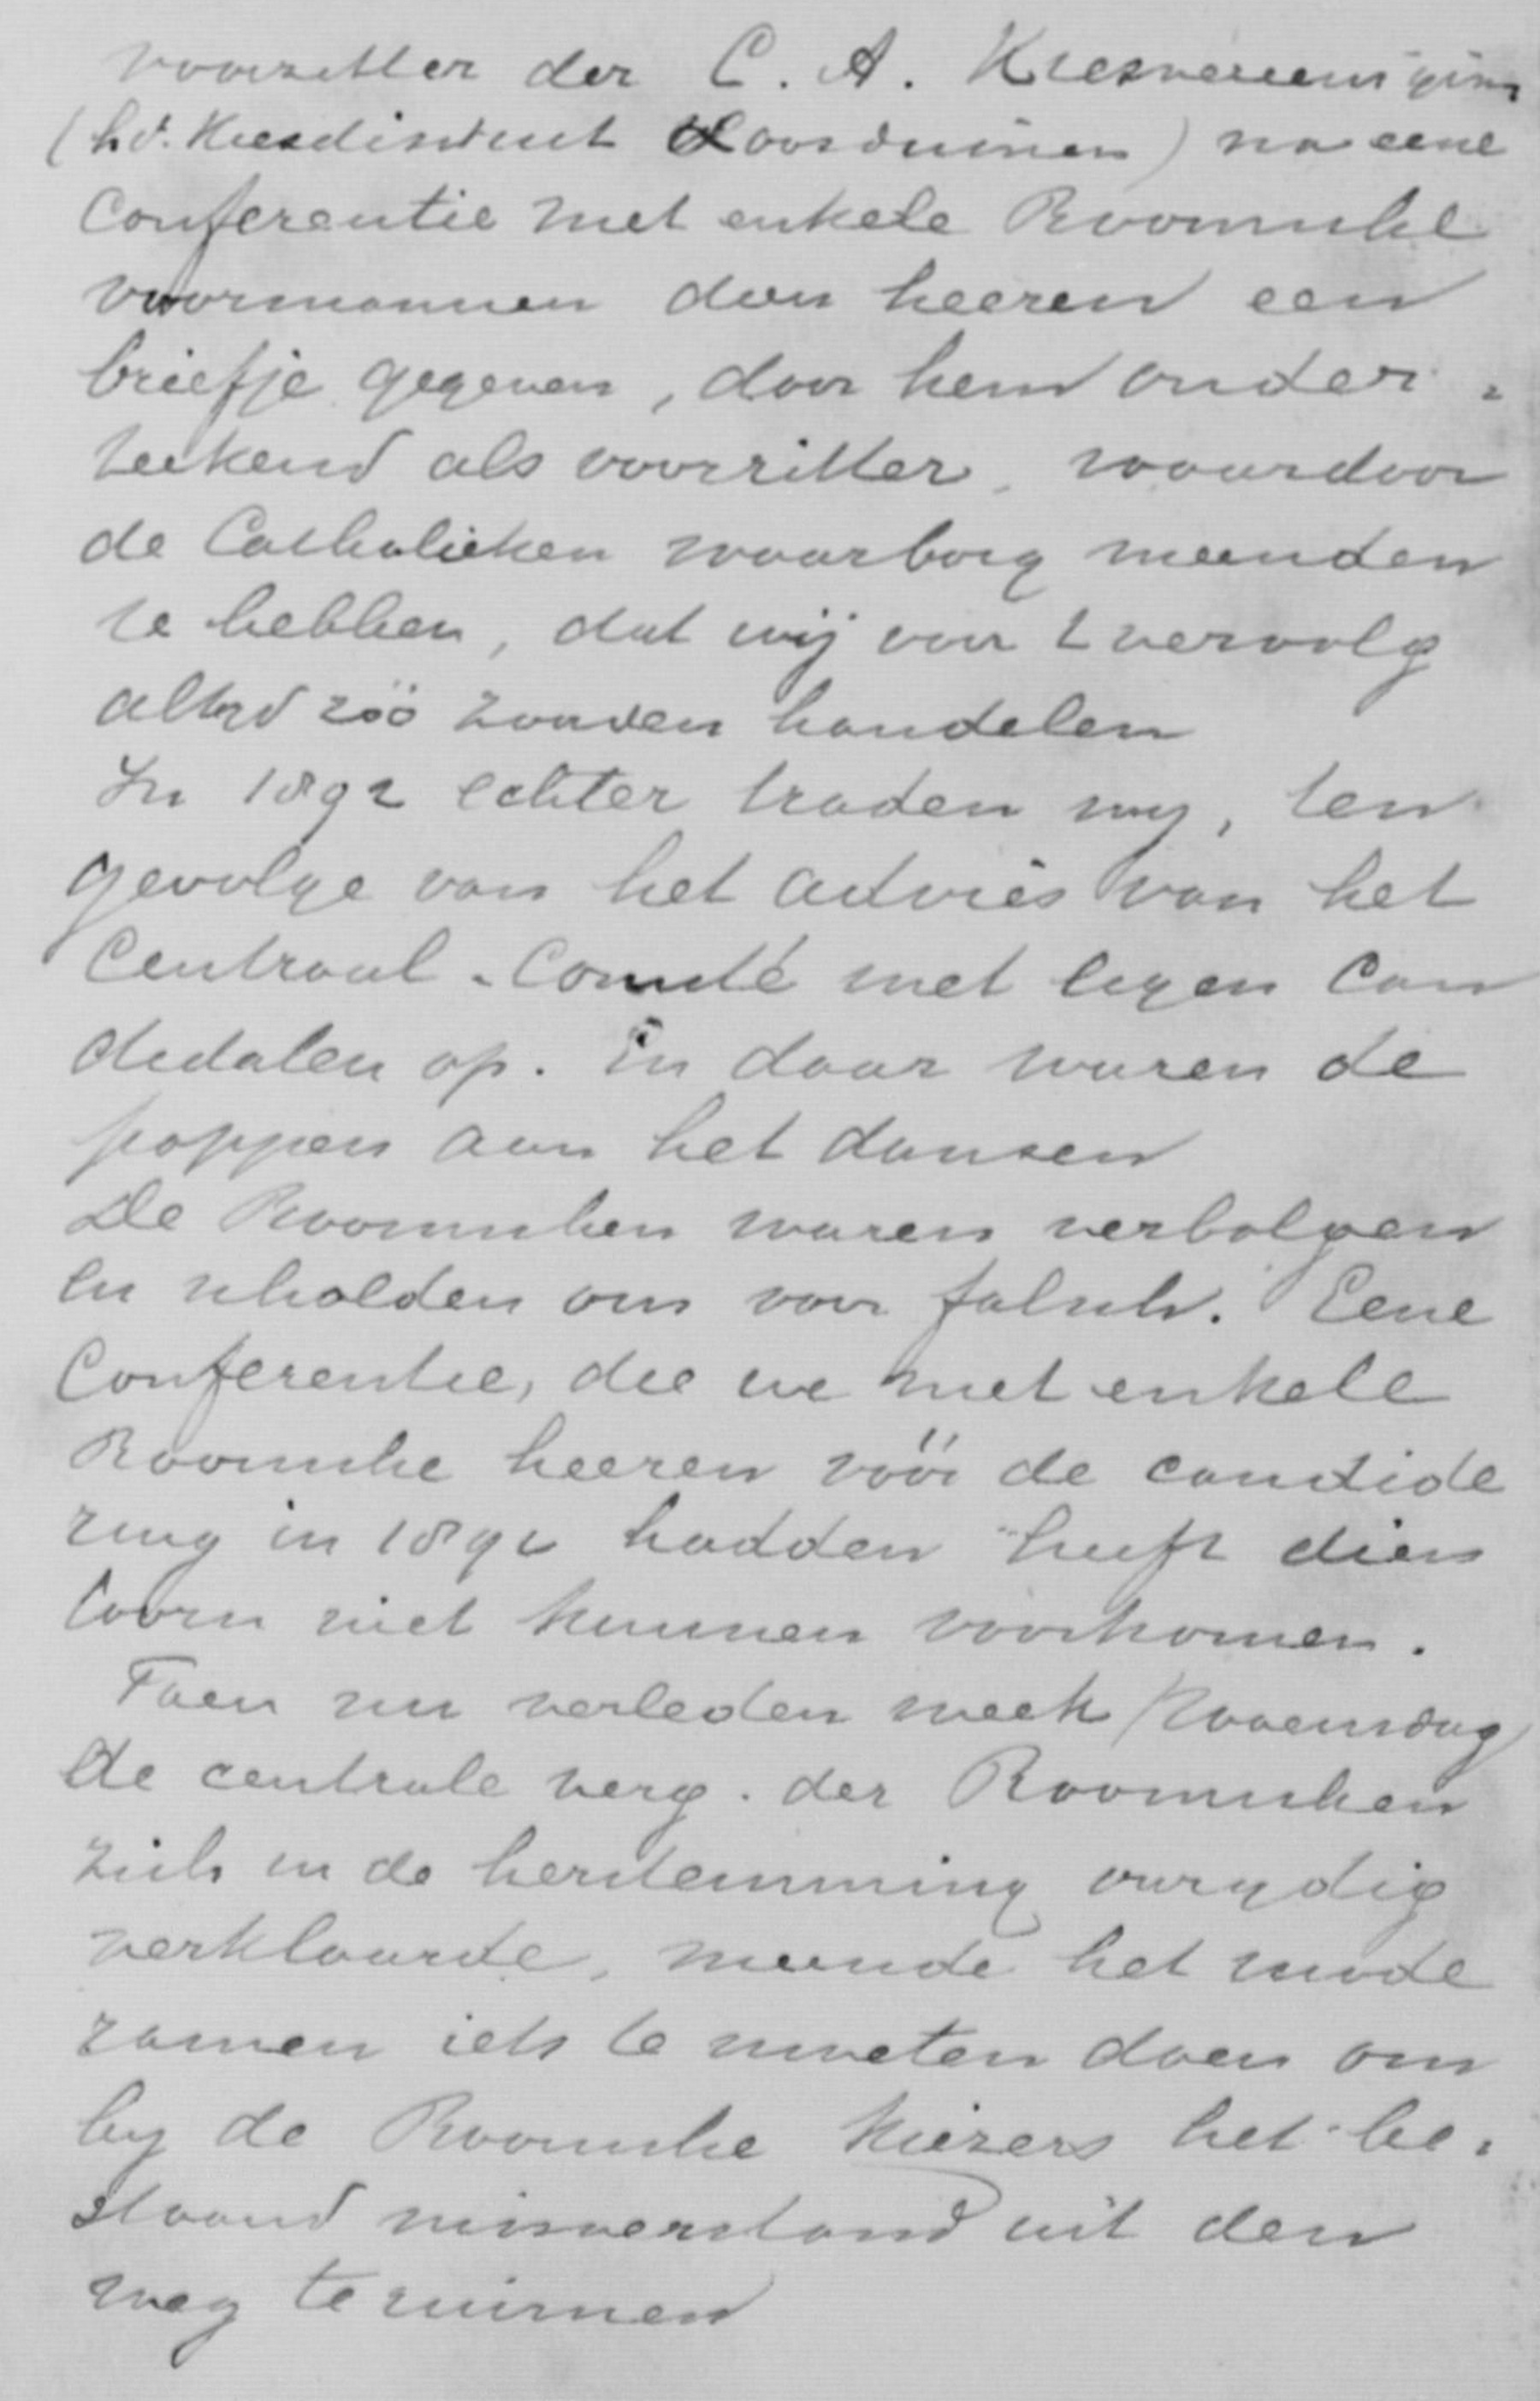 voorzitter der C. A. Kiesvereeniging
(hd. Kiesdistrict Loosduinen) na eene
Conferentie met enkele Roomsche
voormannen den heeren een
briefje gegeven, door hem onder-
teekend als voorzitter, waardoor
de Catholieken waarborg meenden
te hebben, dat wij voor t vervolg
altijd zóó zouden handelen
In 1892 echter traden wij, ten
gevolge van het advies van het
Centraal-Comité met eigen can
didaten op. En daar waren de
poppen aan het dansen
De Roomschen waren verbolgen
en scholden ons voor falsch. Eene
Conferentie, die we met enkele
Roomsche heeren vóór de candide
ring in 1892 hadden heeft dien
toorn niet kunnen voorkomen.
Toen nu verleden week Woensdag
de centrale verg. der Roomschen
zich in de herstemming onzydig
verklaarde, meende het mode
ramen iets te moeten doen om
by de Roomsche kiezers het be-
staand misverstand uit den
weg te ruimen